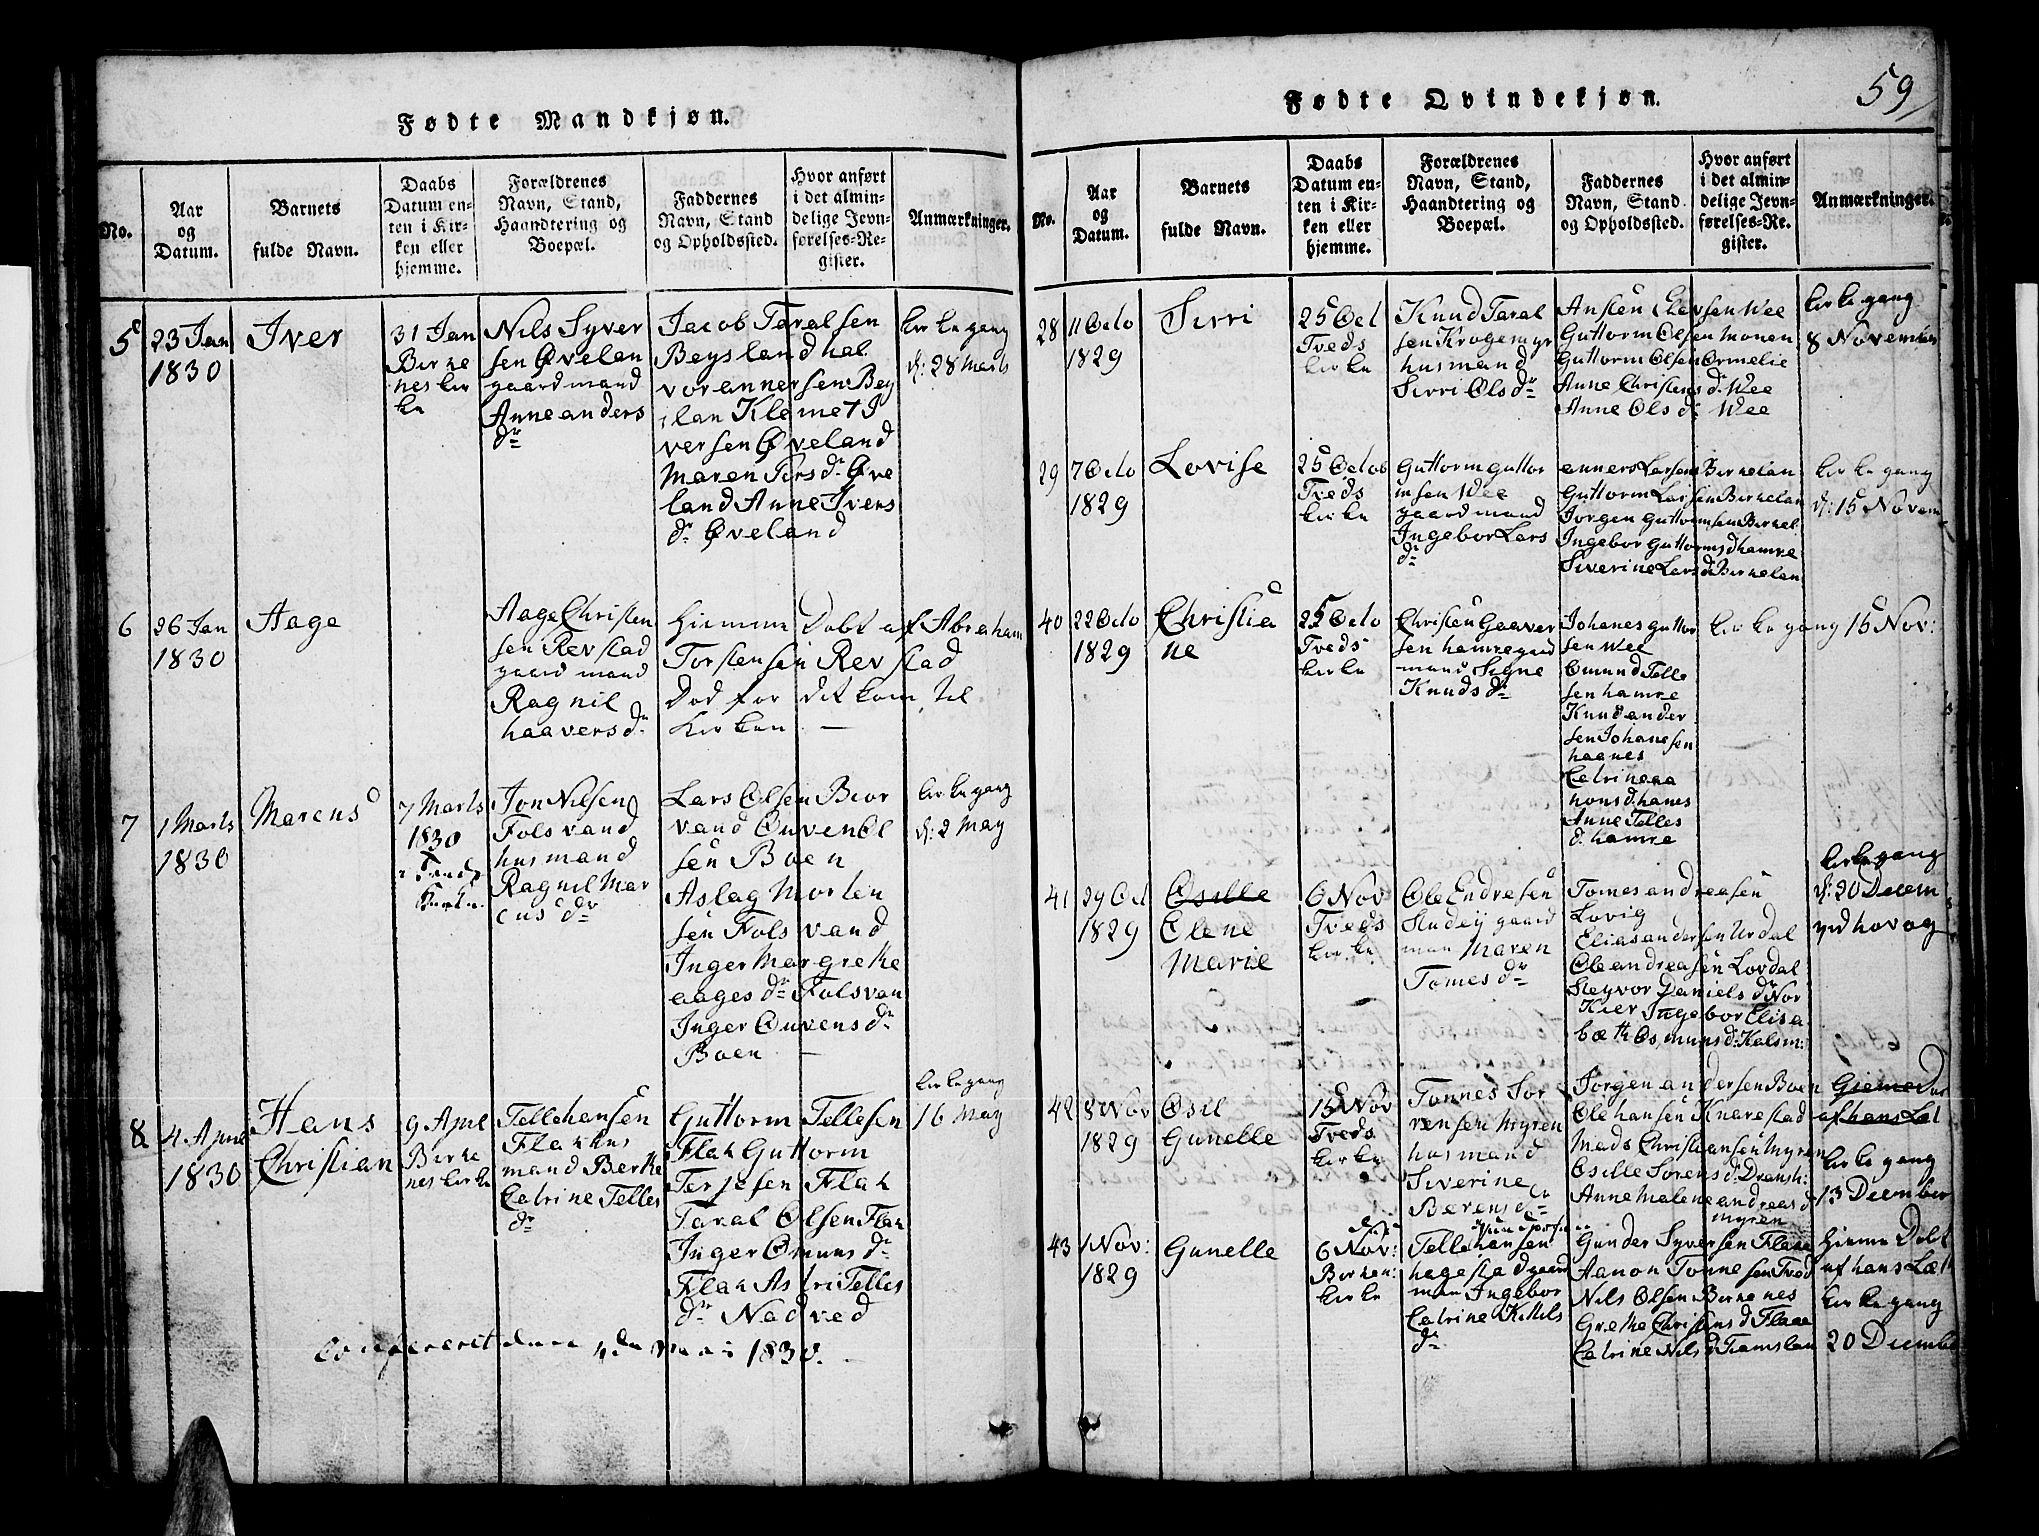 Fødte Mandkjøn.
No.
Aar
og
Datum.
Barnets
fulde Navn.
Daabs
Datum en-
ten i Kir-
ken eller
hjemme.
Forældrenes
Navn, Stand,
Haandtering og
Boepæl.
Faddernes
Navn, Stand
og Opholdssted.
Hvor anført
i det almin-
delige Jevn-
førelses-Re-
gister.
Anmærkninger.
5
23 Jan
1830
Iver
31 Jan
Birke
nes kir
ke
Nils Syver
sen Øvelan
gaard mand
Anne anders
dr
Jacob Taralsen
Beysland hal
vor annersen Bey
ilan Klemet I
versen Øveland
Maren Ters dr Øve
land Anne Ivers
dr Øveland
kirke gang
d: 28 Marts
6
26 Jan
1830
Aage
Aage Christen
sen Revstad
gaard mand
Ragnil
haavers dr
Hiemme Døbt af Abraham
Torstensen Revstad
Død før det kom til
Kirken —
7
1 Marts
1830
Marcus
7 Marts
1830
Kirke
Jon Nilsen
Folsvand
husmand
Ragnil Mar
cus dr
Lars Olsen Bior
vand Ouven Ol
sen Boen
Aslag Morten
sen Folsvand
Inger Margrethe
aages dr Folsvan
Inger Ouvens dr
Boen —
kirke gang
d: 2 May
8
4 April
1830
Hans
Christian
9 April
Birke
nes kirke
Tellehansen
Flak hus
mand Berthe
Catrine Telles
dr
Guttorm Tellesen
Flak Guttorm
Terjesen Flak
Taral Olsen Flak
Inger Omuns dr
Flak Astri Telles
dr Nadved
kirke gang
16 May
1830.
Fødte Qvindekjøn.
59
No.
Aar
og
Datum.
Barnets
fulde Navn.
Daabs
Datum en-
ten i Kir-
ken eller
hjemme.
Forældrenes
Navn, Stand,
Haandtering og
Boepæl.
Faddernes
Navn, Stand
og Opholdssted.
Hvor anført
i det almin-
delige Jevn-
førelses-Re-
gister.
Anmærkninger.
28
11 Octo
1829
Sirri
25 Oct
Tveds
kirke
Knud Taral
sen Krogemyr
husmand
Sirri Ols dr
Ansten Wee
Guttorm Olsen Monen
Guttorm Olsen Ormelie
Anne Christens dr Wee
Anne Ols dr Wee
kirke gang
8 November
29
7 Octo
1829
Lovise
25 Octob
Tveds
kirke
Guttorm guttor
msen Wee
gaard mand
Ingebor Lars
dr
anners Larsen Birkelan
Guttorm Larsen Birkelan
Jorgen Guttormsen Birkel
Ingebor Guttorms d hamre
Siverine Lars d Birkelan
kirke gang
d: 15 Novem
40
22 Octo
1829
Christia
ne
25 Octo
Tveds
kirke
Christen Geaver
sen hamregaard
mand Signe
Knuds dr
Johanes guttor
sen Wee
Omund Telle
sen hamre
Knud ander
sen Johanesen
haanes
Catrine aa
nons d. hanes
Anne Telles
d. hamre
kirke gang 15 Nov:
41
29 Oct
1829
Osille
Elene
Marie
6 Nov
Tveds
kirke
Ole Endresen
Studeij gaard
man Maren
Tomes dr
Tomes andreasen
Lovig
Elias andersen Urdal
Ole andreasen Lovdal
Steyvor Daniels dr Nor
Kier Ingebor Elisa
bæth Osmuns d: Kalsm:
kirke gang
d: 20 Decem
ved hovog
42
8 Nov
1829
Osil
Gunelle
15 Nov
Tveds
kirke
Tonnes Sor
rensen Myren
husmand
Siverine
Berens dr
Jorgen andersen Boen
Ole hansen Knarestad
Mads Christiansen Myren
Osille Sorens d. Drensh:
Anne Malene andreas d
Myren
af hans Læt
kirke gang
13 December
43
1 Nov:
1829
Gunelle
6 Nov:
Birken:
kirke
Tellehansen
hagestad gaard
man Ingebor
Catrine Kittils
dr
Gunder Syversen Flaae
Aanon Tonnesen Tved
Nils Olsen Birkenes
Grethe Christens d Flaae
Catrine Nils d Tiamslan
Hieme Døbt
af hans Læt
kirke gang
20 Decembe